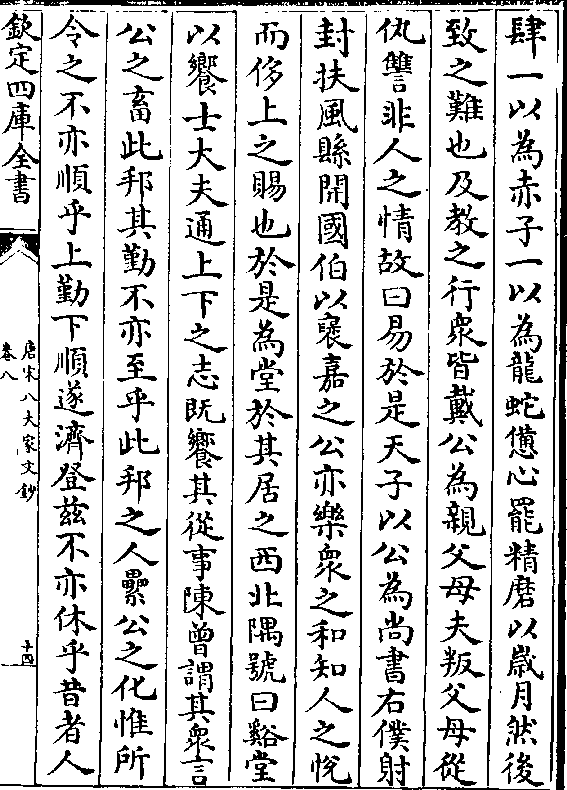 肆一以為赤子一以為龍蛇憊心罷精磨以歲月然後
致之難也及教之行衆皆戴公為親父母夫叛父母從
仇讐非人之情故曰易於是天子以公為尚書右僕射
封扶風縣開國伯以襃嘉之公亦樂衆之和知人之悅
而侈上之賜也於是為堂於其居之西北隅號曰谿堂
以饗士大夫通上下之志既饗其從事陳曾謂其衆言
公之畜此邦其勤不亦至乎此邦之人纍公之化惟所
令之不亦順乎上勤下順遂濟登茲不亦休乎昔者人
欽定四庫全書
唐宋八大家文鈔
卷八
十四